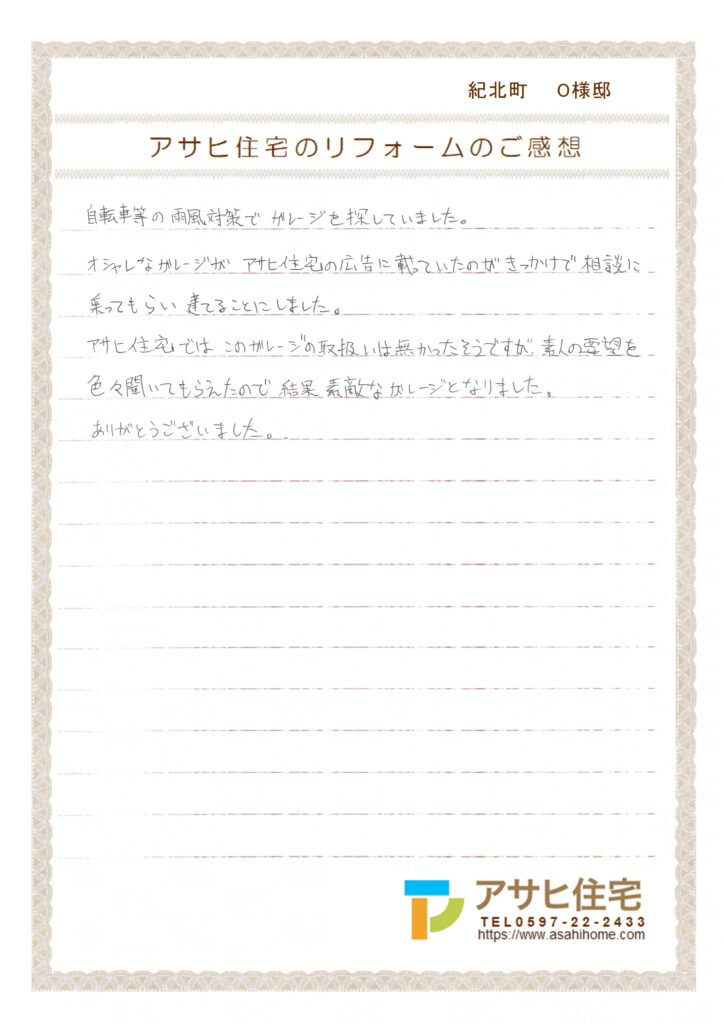 紀北町　O様邸
アサヒ住宅のリフォームのご感想
自転車等の雨風対策でガレージを探していました。
オシャレなガレージが アサヒ住宅の広告に載っていたのがきっかけで相談に
乗ってもらい建てることにしました。
アサヒ住宅ではこのガレージの取扱いは無かったそうですが、素人の要望を
色々聞いてもらえたので結果素敵なガレージとなりました。
ありがとうございました。
アサヒ住宅
TEL0597-22-2433
https://www.asahihome.com